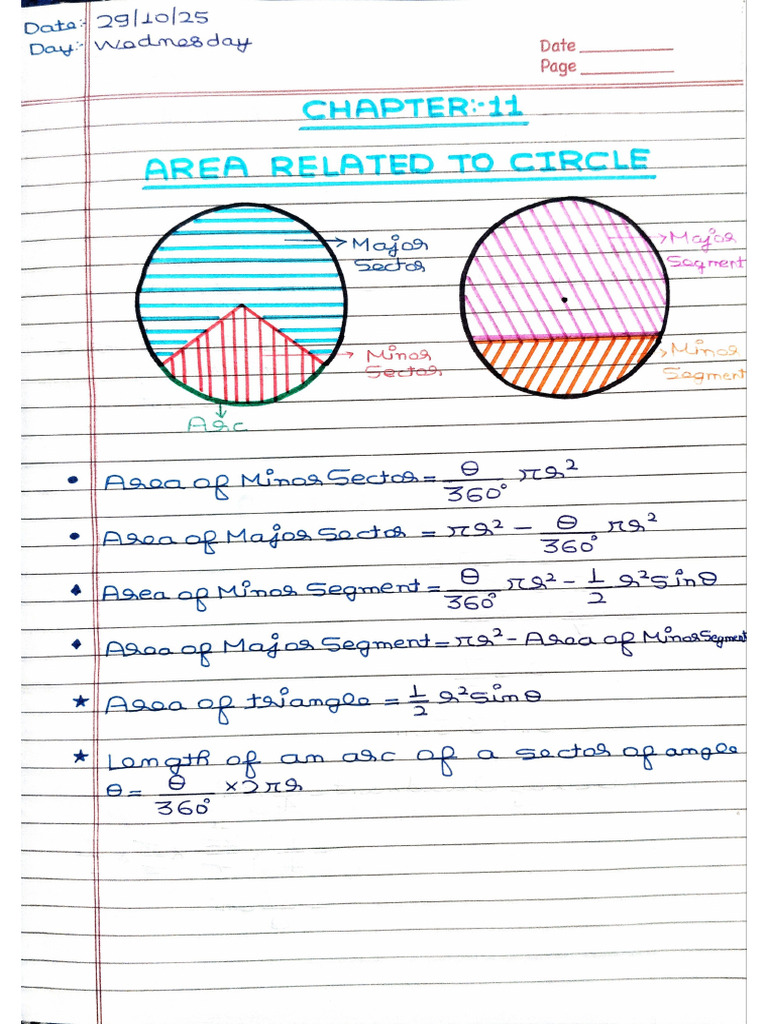 Date:- 29/10/25
Day:- Wednesday
Date
Page
CHAPTER:-11
AREA RELATED TO CIRCLE
Major
Sector
Minor
Sector
Arc
Major
Segment
Minor
Segment
• Area of Minor Sector = θ/360° πr²
• Area of Major Sector = πr² - θ/360° πr²
♦ Area of Minor Segment = θ/360° πr² - 1/2 r² sinθ
♦ Area of Major Segment = πr² - Area of Minor Segment
★ Area of triangle = 1/2 r² sinθ
★ Length of an arc of a sector of angle
θ = θ/360° × 2πr